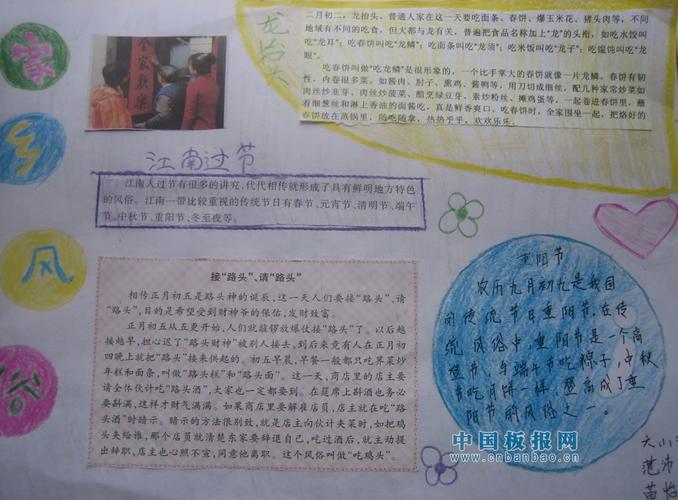 家
乡
风
俗
龙抬头
全家欢乐
二月初二，龙抬头，普通人家在这一天要吃面条、春饼、爆玉米花、猪头肉等，不同
地域有不同的吃食，但大都与龙有关，普遍把食品名称加上“龙”的头衔，如吃水饺叫
吃“龙耳”；吃春饼叫吃“龙鳞”；吃面条叫吃“龙须”；吃米饭叫吃“龙子”；吃馄饨叫吃“龙
眼”。
吃春饼叫做“吃龙鳞”是很形象的，一个比手掌大的春饼就像一片龙鳞。春饼有韧
性，内卷很多菜。如酱肉、肘子、熏鸡、酱鸭等，用刀切成细丝，配几种家常炒菜如
肉丝炒韭芽、肉丝炒菠菜、醋烹绿豆芽、素炒粉丝、摊鸡蛋等，一起卷进春饼里，蘸
着细葱丝和淋上香油的面酱吃，真是鲜香爽口。吃春饼时，全家围坐一起，把烙好的
春饼放在蒸锅里，随吃随拿，热热乎乎，欢欢乐乐。
江南过节
江南人过节有很多的讲究，代代相传就形成了具有鲜明地方特色
的风俗。江南一带比较重视的传统节日有春节、元宵节、清明节、端午
节、中秋节、重阳节、冬至夜等。
接“路头”、请“路头”
相传正月初五是路头神的诞辰，这一天人们要接“路头”、请
“路头”，目的是希望受到财神爷的保佑，发财致富。
正月初五从五更开始，人们就敲锣放爆仗接“路头”了。以后越
接越早，担心迟了“路头财神”被别人接去，到后来竟有人在正月初
四晚上就把“路头”接来供起的。初五早晨，早餐一般都只吃荠菜炒
年糕和面条，叫做“路头糕”和“路头面”。这一天，商店里的店主要
请全体伙计吃“路头酒”，大家也一定都要到。在筵席上斟酒也务必
要斟满，这样才财气满满。如果商店里要解雇店员，店主就在吃“路
头酒”时暗示。暗示的方法很别致，就是店主向伙计夹菜时，如把鸡
头夹给谁，那个店员就清楚东家要辞退自己，吃过酒后，就主动提
出辞职，店主也心照不宣，同意他离职。这个风俗叫做“吃鸡头”。
重阳节
农历九月初九是我国
的传统节日重阳节，在传
统风俗中，重阳节是一个高
登节，与端午节吃粽子，中秋
节吃月饼一样，登高成了重
阳节的风俗之一。
中国板报网
www.cnbanbao.cn